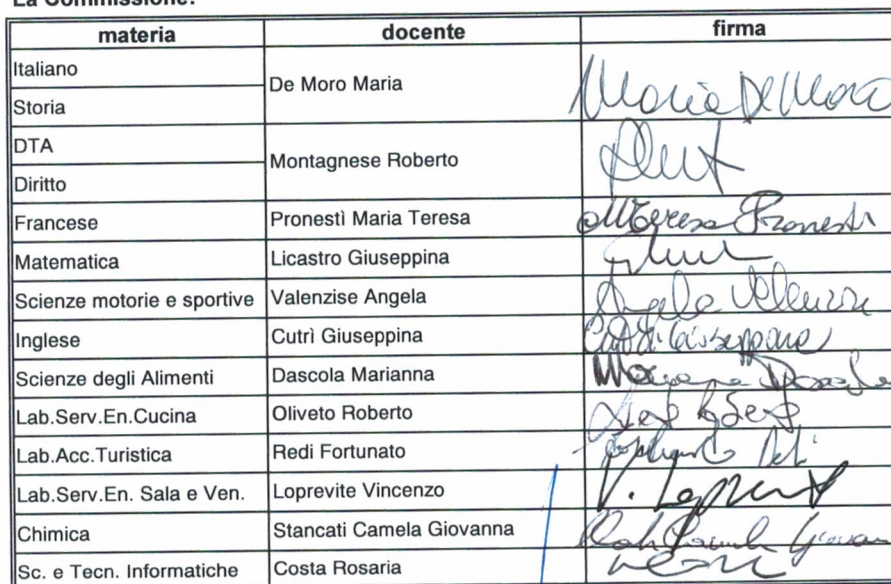 La Commissione:
materia docente firma
Italiano De Moro Maria Maria De Moro
Storia
DTA Montagnese Roberto
Diritto
Francese Pronestì Maria Teresa MTeresa Pronestì
Matematica Licastro Giuseppina
Scienze motorie e sportive Valenzise Angela Angela Valenzise
Inglese Cutrì Giuseppina Cutrì Giuseppina
Scienze degli Alimenti Dascola Marianna Marianna Dascola
Lab.Serv.En.Cucina Oliveto Roberto
Lab.Acc.Turistica Redi Fortunato
Lab.Serv.En. Sala e Ven. Loprevite Vincenzo
Chimica Stancati Camela Giovanna
Sc. e Tecn. Informatiche Costa Rosaria